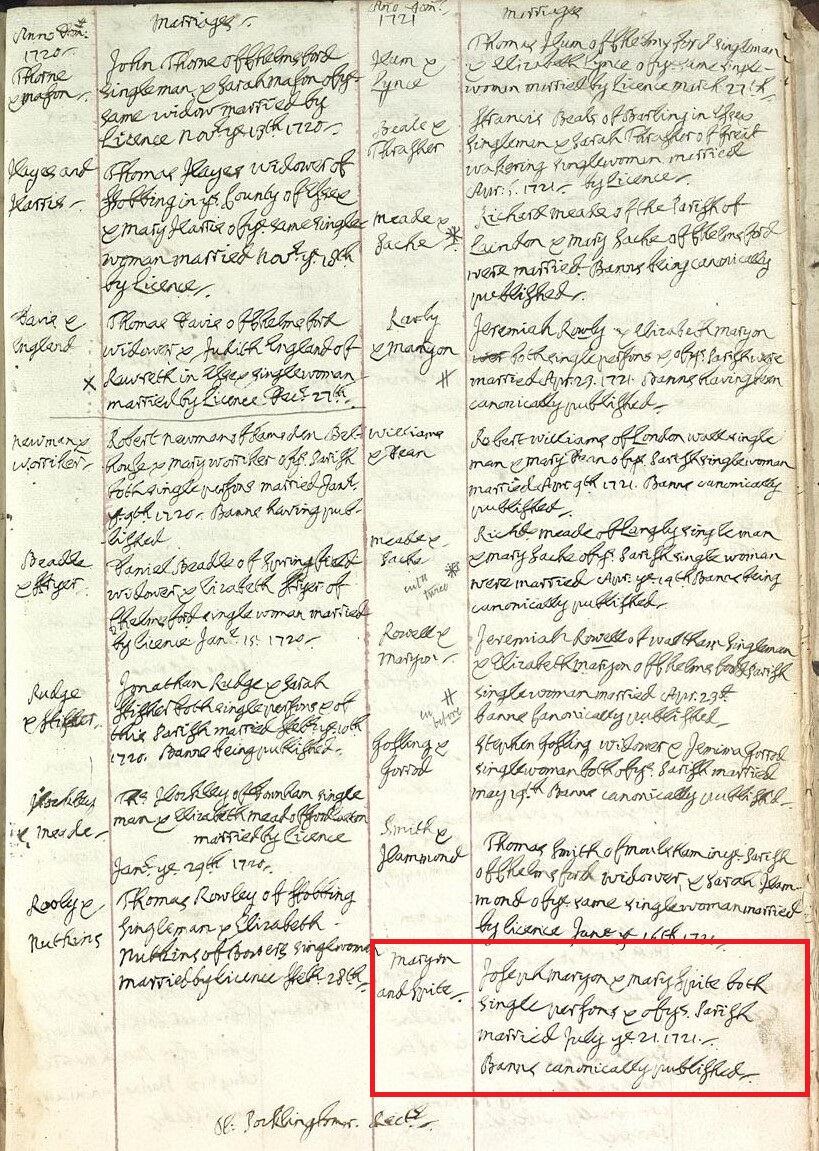 Anno Dom: Marriages.
1720.
Thorne
& Mason.
John Thorne of Chelmsford
singleman & Sarah Mason of ye
same widow married by
Licence Nov: ye 13th 1720.
Hayes and
Harris.
Thomas Hayes widower of
Stobbing in ye County of Essex
& Mary Harris of ye same single
woman married Novr. ye 18th
by Licence.
Davis &
England
x
Thomas Davis of Chelmsford
widower & Judith England of
Rawreth in Essex singlewoman
married by Licence Decr. 27th.
Newman &
Worriker.
Robert Newman of Ramsden Bel-
house & Mary Worriker of ys. Parish
both single persons married Janr.
ye 9th 1720. Banns having pub-
lished
Beadle
& Fryer.
Daniel Beadle of Springfield
widower & Elizabeth Fryer of
Chelmsford single woman married
by licence Janr. 15: 1720.
Rudge
&
Jonathan Rudge & Sarah
both single persons & of
this Parish married Feb: ye 10th
1720. Banns being published.
& Meade.
Ths of single
man & Elizabeth Mead of
married by Licence
Janr. ye 29th 1720.
Rowley &
Nuthins
Thomas Rowley of Stobbing
singleman & Elizabeth
Nuthins of Bowers singlewoman
married by licence Feb: 28th.
Anno Dom: Marriages
1721
Ham &
Lynce
Thomas Ham of Chelmsford singleman
& Elizabeth Lynce of ye same single-
woman married by Licence March 27th.
Beale &
Thrasher
Francis Beale of Barling in Essex
singleman & Sarah Thrasher of Great
Wakering singlewoman married
Apr. 5. 1721. by Licence.
Meade &
Sache *
Richard Meade of the Parish of
Laindon & Mary Sache of Chelmsford
were married. Banns being canonically
published.
Rowly
& Maryon
#
Jeremiah Rowly & Elizabeth Maryon
both single persons & of ys. Parish were
married Apr. 23. 1721. Banns having been
canonically published.
Williams
& Dean
Robert Williams of London wall single
man & Mary Dean of ys. Parish singlewoman
married Apr. 9th 1721. Banns canonically
published.
Meade &
Sache *
twice
Richd. Meade of Langly single man
& Mary Sache of ys. Parish single woman
were married Apr. ye 19th Banns being
canonically published.
Rowell &
Maryon.
#
before
Jeremiah Rowell of Waltham singleman
& Elizabeth Maryon of Chelmsford Parish
singlewoman married Apr. 23d.
banns canonically published.
Gosling &
Gorrod
Stephen Gosling widower & Jemima Gorrod
singlewoman both of ys. Parish married
May 19th. Banns canonically published.
Smith &
Hammond
Thomas Smith of Moulsham in ye. Parish
of Chelmsford widower, & Sarah Ham-
mond of ye same singlewoman married
by licence June ye 16th 1721.
Maryon
and Spite.
Joseph Maryon & Mary Spite both
single persons & of ys. Parish
married July ye 21. 1721.
Banns canonically published.
Rectr.